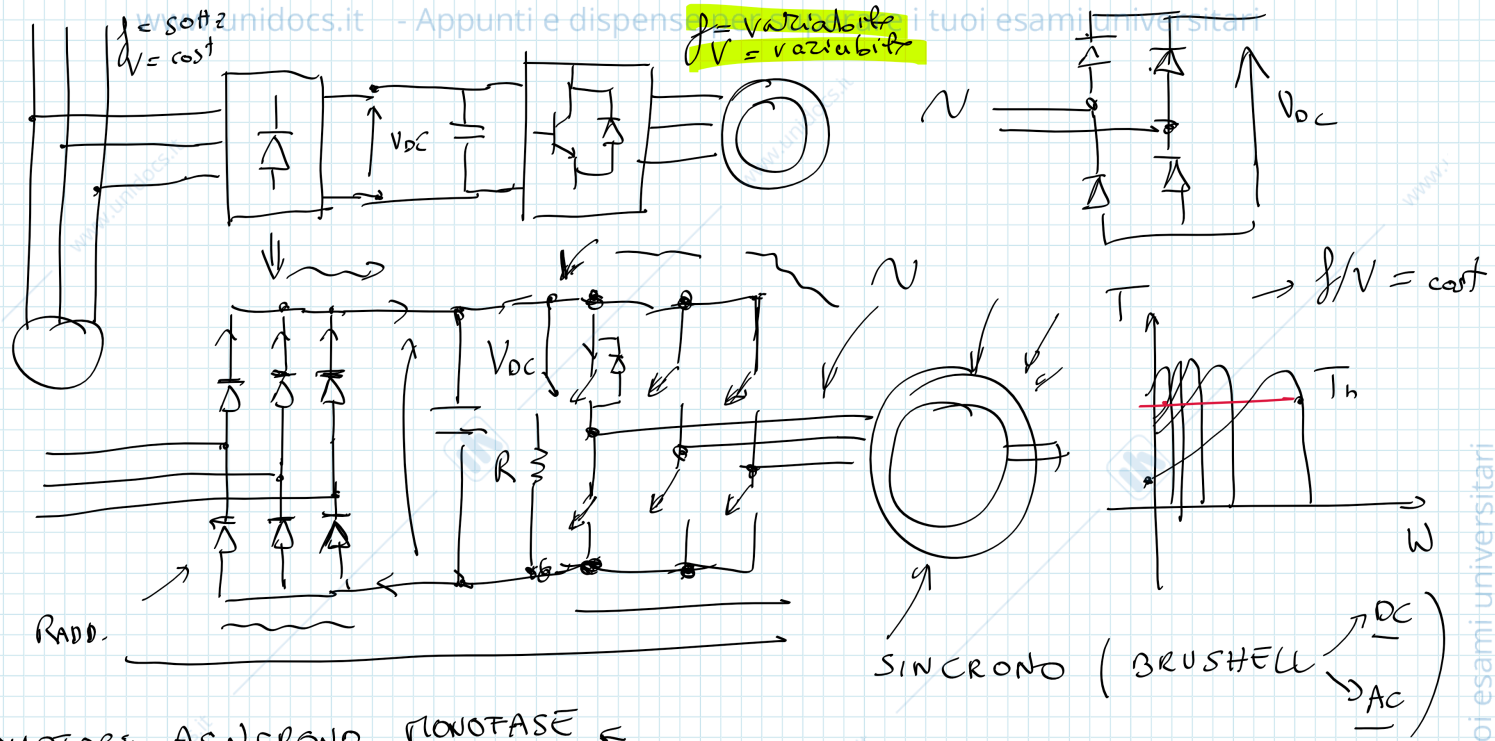 www.unidocs.it - Appunti e dispense per superare i tuoi esami universitari
f = 50Hz
V = cost
f = variabile
V = variabile
VDC
VDC
→ f/V = cost
T
Tn
W
VDC
R
RADD.
SINCRONO ( BRUSHELL
DC
AC )
ASINCRONO MONOFASE
www.unidocs.it
www.unidocs.it
oi esami universitari